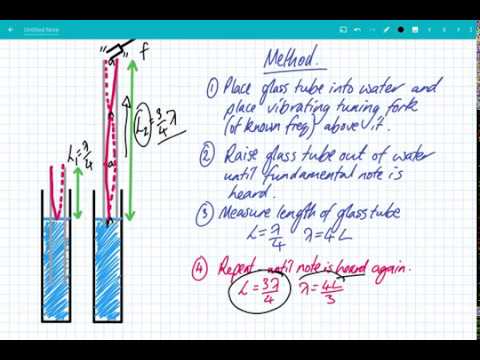 Untitled Note
f
a
n
a
n
L₁=λ/4
L₂=3/4 λ
Method.
① Place glass tube into water and
place vibrating tuning fork
(of known freq) above it.
② Raise glass tube out of water
until fundamental note is
heard.
③ Measure length of glass tube
L=λ/4 λ=4L
④ Repeat until note is heard again.
L=3λ/4 λ=4L/3